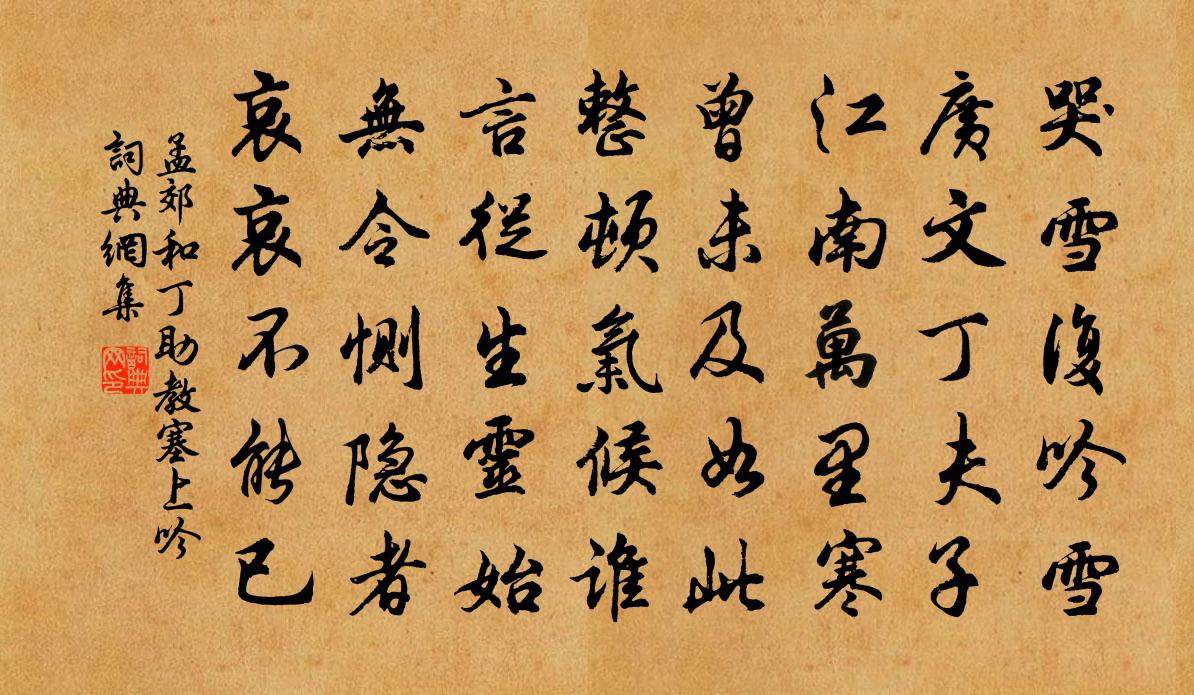 哭雪復吟雪
廣文丁夫子
江南萬里寒
曾未及如此
整頓氣候誰
言從生靈始
無令惻隐者
哀哀不能已
孟郊和丁助教塞上吟
詞典網集
詞典網印